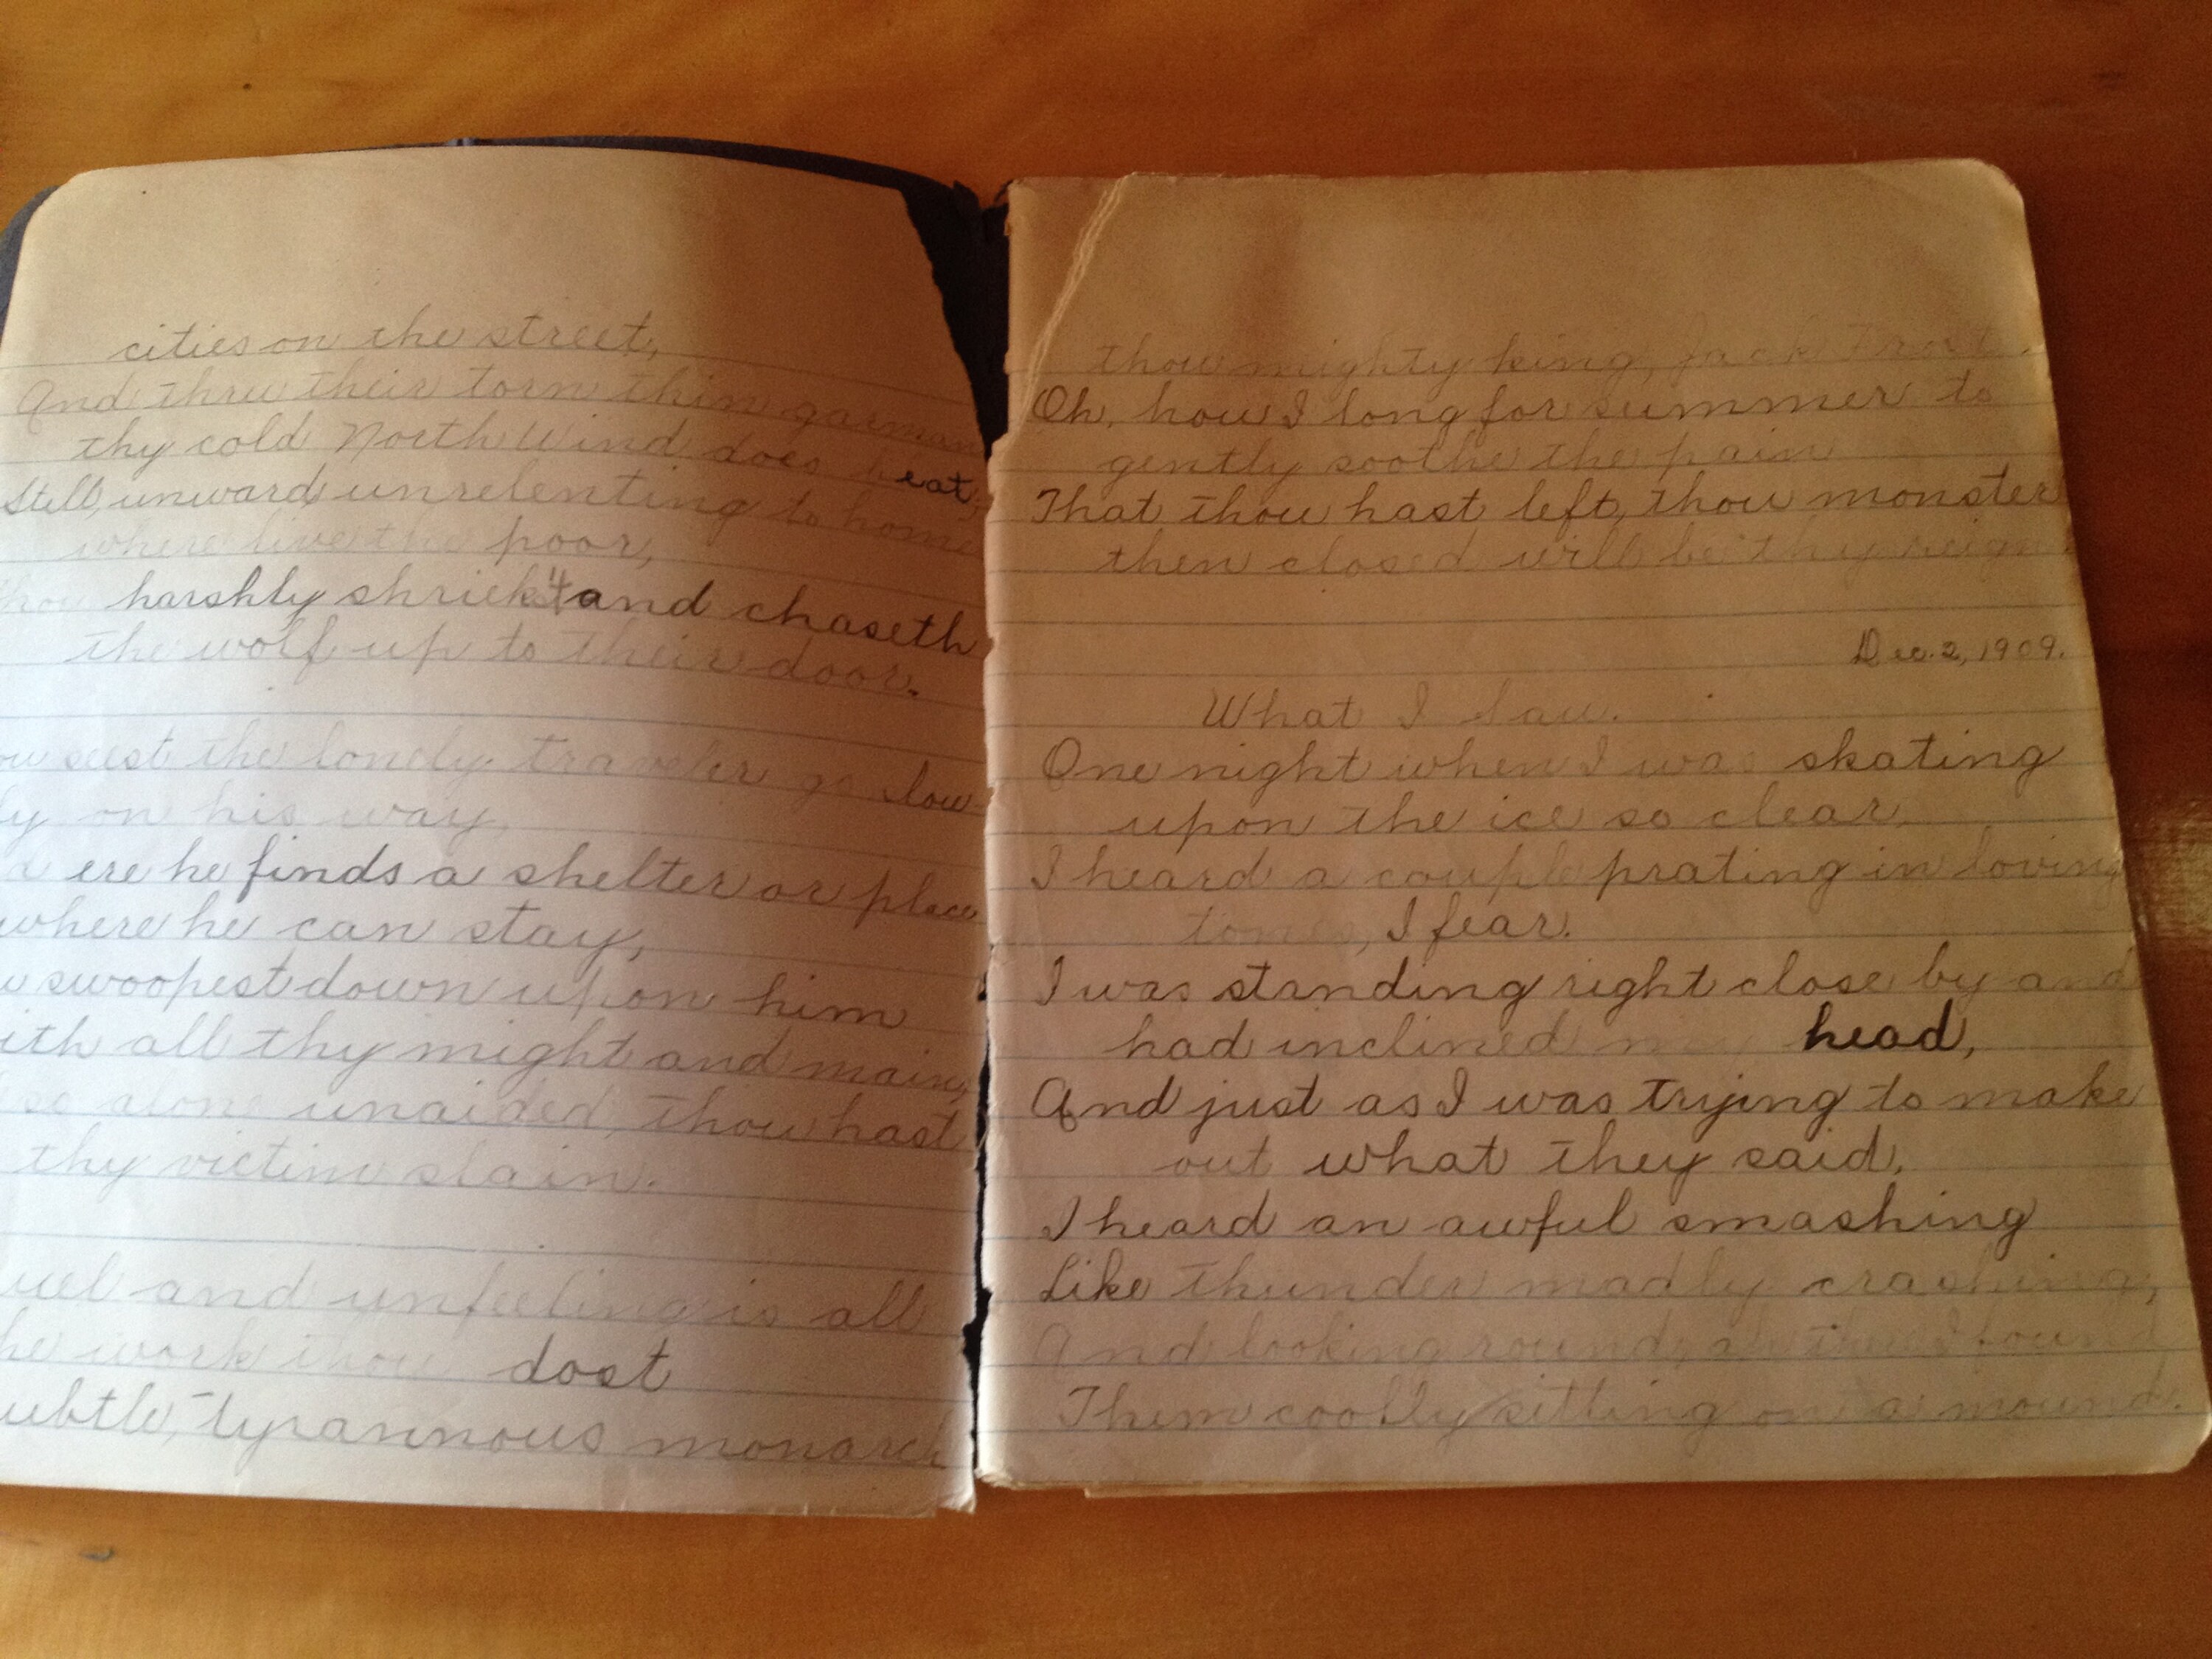 cities on the street,
And thru their torn thin garmen
thy cold North Wind does beat,
Still, unward, unrelenting to home
where live the poor,
thou harshly shriek'st and chaseth
the wolf up to their door.
ou seest the lonely traveler go slow-
ly on his way,
ere he finds a shelter or place
where he can stay,
u swoopest down upon him
ith all thy might and main,
alone unaided, thou hast
thy victim slain.
uel and unfeeling is all
he work thou dost
ubtle, tyrannous monarch
thou mighty king, Jack Frost.
Oh, how I long for summer to
gently soothe the pain
That thou hast left, thou monster
then closed will be thy reign.
Dec. 2, 1909.
What I Saw.
One night when I was skating
upon the ice so clear,
I heard a couple prating in loving
tones, I fear.
I was standing right close by and
had inclined my head,
And just as I was trying to make
out what they said,
I heard an awful smashing
Like thunder madly crashing,
And looking round, I found
Them coolly sitting on a mound.